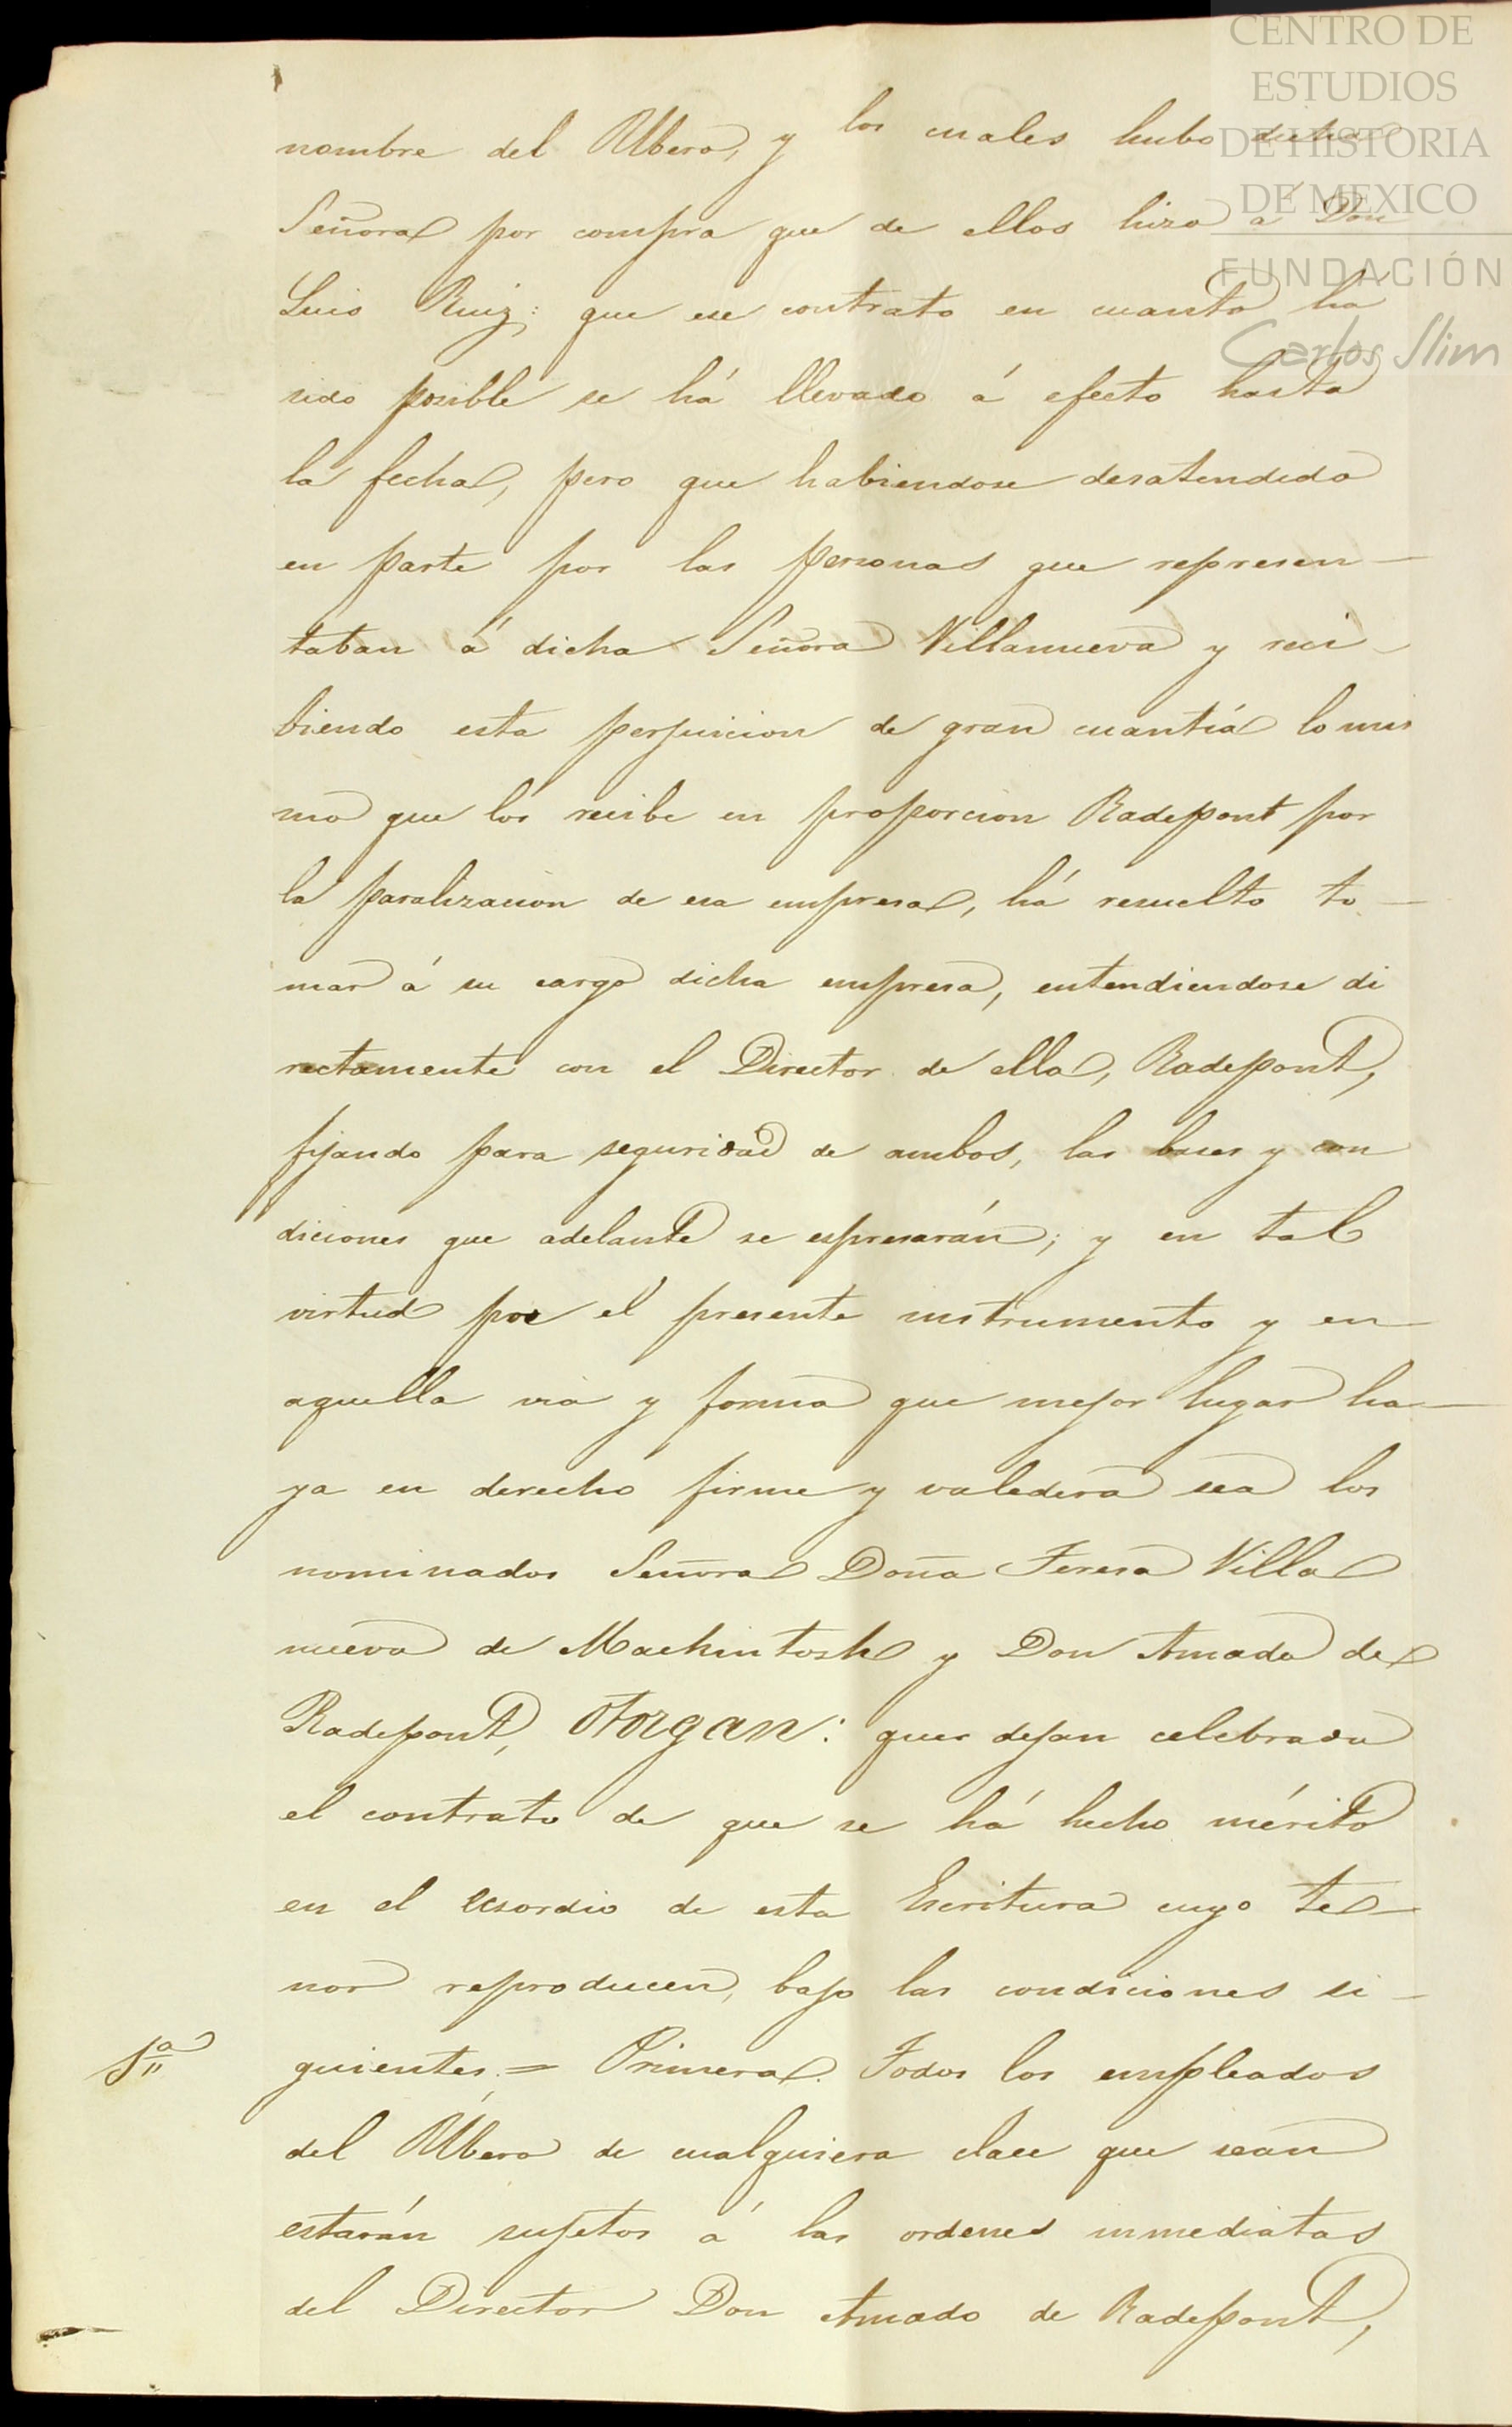 CENTRO DE
ESTUDIOS
DE HISTORIA
DE MEXICO
FUNDACIÓN
Carlos Slim
nombre del Ubero, y los cuales hubo dicha
Señora por compra que de ellos hizo á Don
Luis Ruiz: que ese contrato en cuanto ha
sido posible se há llevado á efecto hasta
la fecha, pero que habiendose desatendido
en parte por las personas que represen-
taban á dicha Señora Villanueva y reci-
biendo esta perjuicion de gran cuantía lo mis
mo que los recibe en proporcion Radepont por
la paralizacion de esa empresa, há resuelto to-
mar á su cargo dicha empresa, entendiendose di
rectamente con el Director de ella, Radepont,
fijando para seguridad de ambos, las bases y con
diciones que adelante se espresarán; y en tal
virtud por el presente instrumento y en
aquella via y forma que mejor lugar ha-
ya en derecho firme y valedera sea los
nominados Señora Doña Teresa Villa
nueva de Mackintosh y Don Amado de
Radepont, Otorgan: que dejan celebrado
el contrato de que se há hecho mérito
en el exsordio de esta Escritura cuyo te-
nor reproducen, bajo las condiciones si-
1ª guientes. = Primera. Todos los empleados
del Ubero de cualquiera clase que sean
estarán sujetos á las ordenes inmediatas
del Director Don Amado de Radepont,